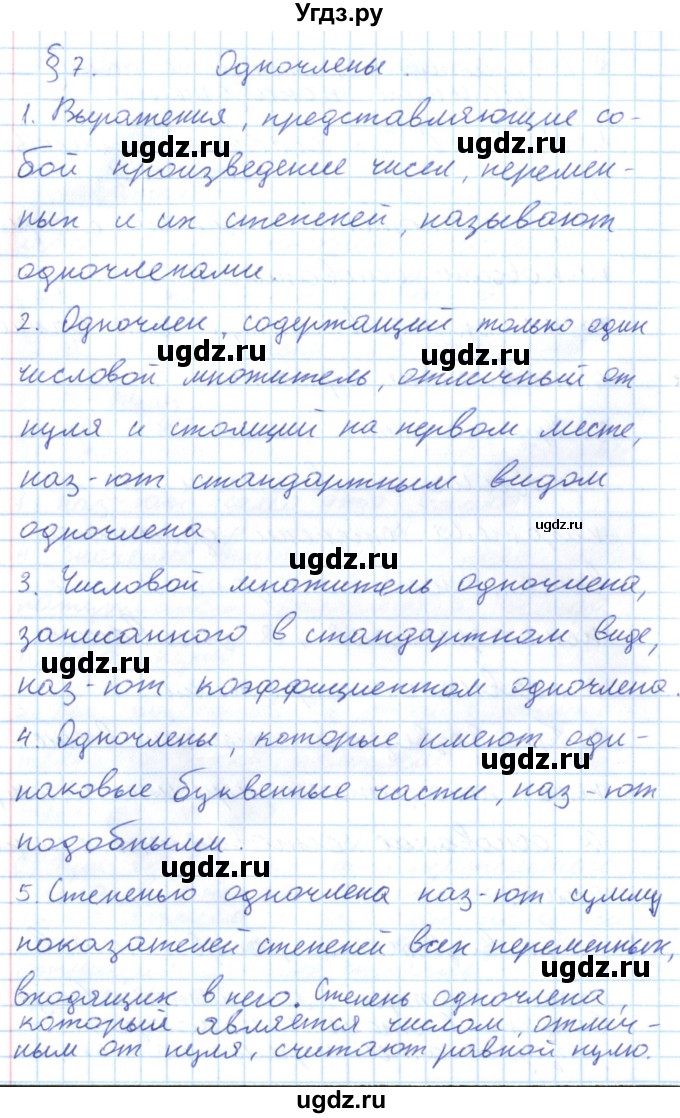 Угдз.ру
§ 7. Одночлены.
1. Выражения, представляющие со-
бой произведение чисел, перемен-
ных и их степеней, называют
одночленами.
2. Одночлен, содержащий только один
числовой множитель, отличный от
нуля и стоящий на первом месте,
наз-ют стандартным видом
одночлена.
3. Числовой множитель одночлена,
записанного в стандартном виде,
наз-ют коэффициентом одночлена.
4. Одночлены, которые имеют оди-
наковые буквенные части, наз-ют
подобными.
5. Степенью одночлена наз-ют сумму
показателей степеней всех переменных,
входящих в него. Степень одночлена,
который является числом, отлич-
ным от нуля, считают равной нулю.
ugdz.ru
ugdz.ru
ugdz.ru
ugdz.ru
ugdz.ru
ugdz.ru
ugdz.ru
ugdz.ru
ugdz.ru
ugdz.ru
ugdz.ru